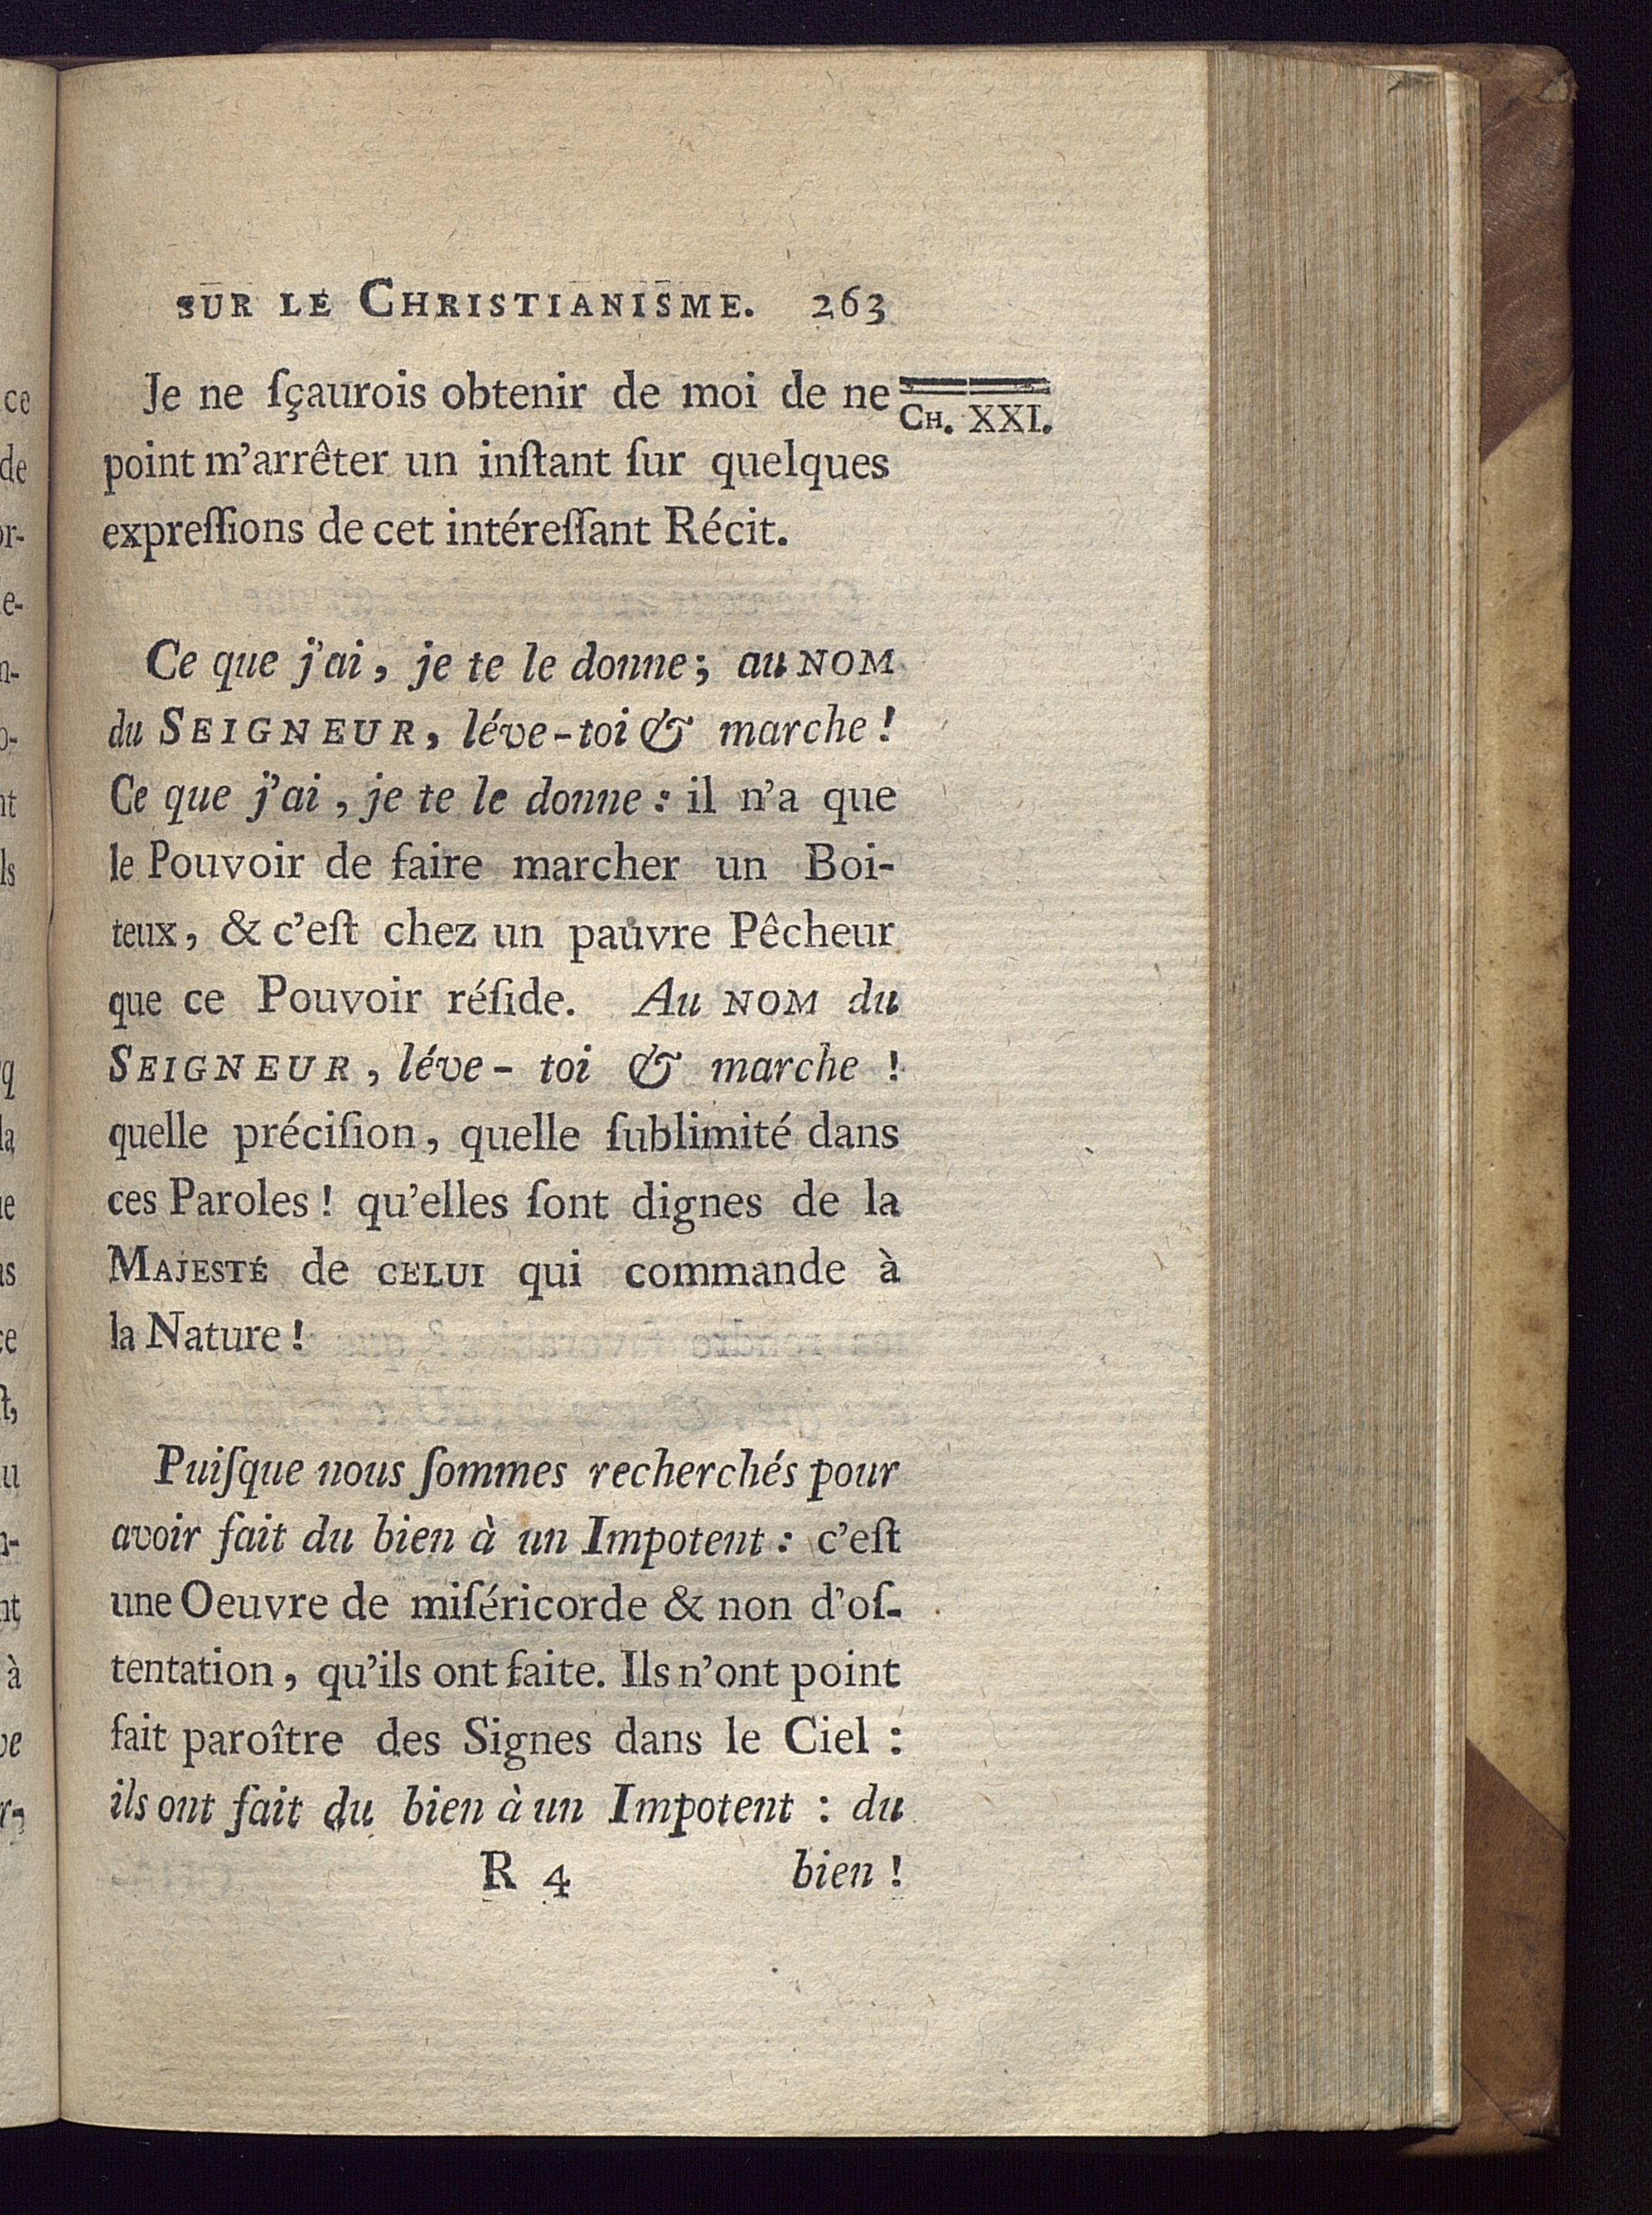 SUR LE CHRISTIANISME. 263
Je ne ſçaurois obtenir de moi de ne
CH. XXI.
point m'arrêter un inſtant ſur quelques
expreſſions de cet intéreſſant Récit.
Ce que j'ai, je te le donne; au NOM
du SEIGNEUR, léve-toi & marche!
Ce que j'ai, je te le donne: il n'a que
le Pouvoir de faire marcher un Boi-
teux, & c'eſt chez un pauvre Pêcheur
que ce Pouvoir réſide. Au NOM du
SEIGNEUR, léve-toi & marche!
quelle préciſion, quelle ſublimité dans
ces Paroles! qu'elles ſont dignes de la
MAJESTÉ de CELUI qui commande à
la Nature!
Puiſque nous ſommes recherchés pour
avoir fait du bien à un Impotent: c'eſt
une Oeuvre de miſéricorde & non d'oſ-
tentation, qu'ils ont faite. Ils n'ont point
fait paroître des Signes dans le Ciel:
ils ont fait du bien à un Impotent: du
R 4 bien!